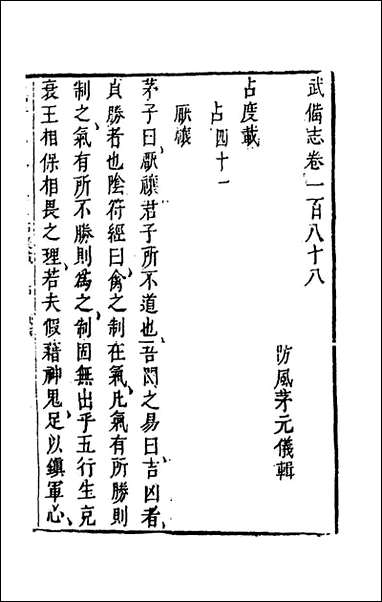 武備志卷一百八十八
防風茅元儀輯
占度載
占四十一
厭禳
茅子曰厭禳君子所不道也吾聞之易曰吉凶者
貞勝者也陰符經曰禽之制在氣凡氣有所勝則
制之氣有所不勝則為之制固無出乎五行生克
衰王相保相畏之理若夫假藉神鬼足以鎮軍心